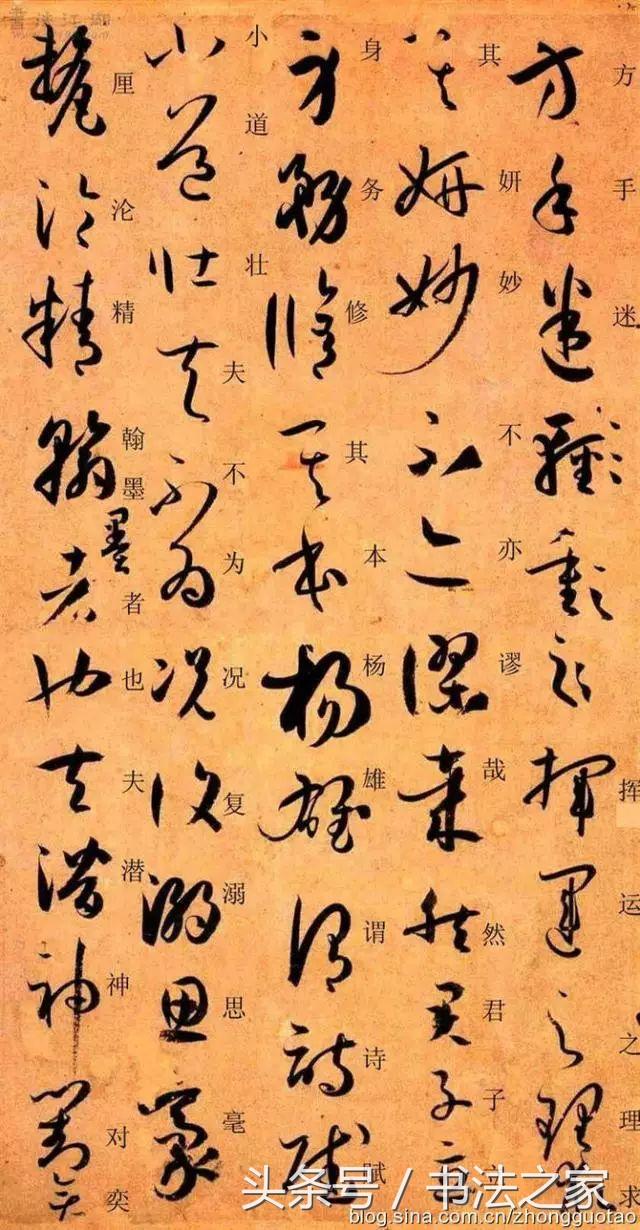 方手迷挥运之理求
其妍妙不亦谬哉然君子
身务修其本杨雄谓诗赋
小道壮夫不为况复溺思毫
厘沦精翰墨者也夫潜神对奕
头条号 / 书法之家
blog.sina.com.cn/zhongguotao